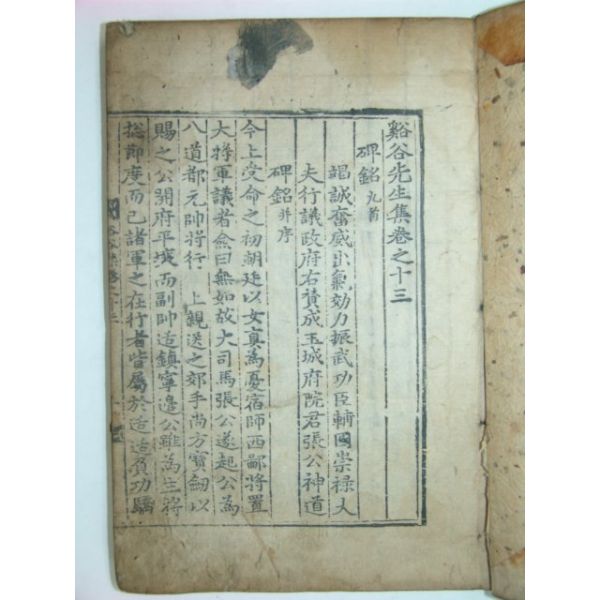 谿谷先生集卷之十三
碑銘 九首
竭誠奮威出氣効力振武功臣輔國崇祿大
夫行議政府右贊成玉城府院君張公神道
碑銘 幷序
今上受命之初朝廷以女眞爲憂宿師西鄙將置
大將軍議者僉曰無如故大司馬張公遂起公爲
八道都元帥將行 上親送之郊手尚方寶劒以
賜之公開府平壤而副帥适鎭寧邊公雖爲主將
揔節度而已諸軍之在行者皆屬於适适負功驕